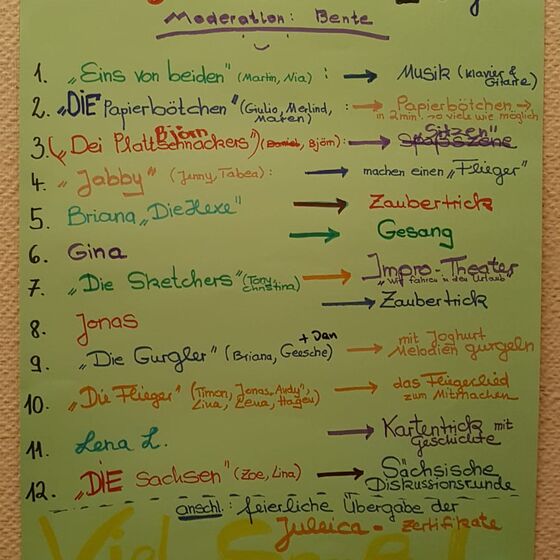 Moderation: Bente
1. "Eins von beiden" (Martin, Nia) : → Musik (Klavier & Gitarre)
2. "DIE Papierbötchen" (Giulio, Merlind, Maren) : → Papierbötchen → in 2min. so viele wie möglich
3. ("Dei Plattschnackers") Björn (Daniel, Björn): → Spaßszene "Sitzen"
4. "Jabby" (Jenny, Tabea): → machen einen "Flieger"
5. Briana "Die Hexe" → Zaubertrick
6. Gina → Gesang
7. "Die Sketchers" (Tony, Christina) → Impro-Theater "Wir fahren in den Urlaub"
8. Jonas → Zaubertrick
9. "Die Gurgler" (Briana, Geesche) + Dan → mit Joghurt Melodien gurgeln
10. "Die Flieger" (Timon, Jonas, Audy, Lina, Lena, Hagen) → das Fliegerlied zum Mitmachen
11. Lena L. → Kartentrick mit Geschichte
12. "DIE Sachsen" (Zoe, Lina) → Sächsische Diskussionsrunde
anschl.: feierliche Übergabe der
Juleica - Zertifikate
Viel